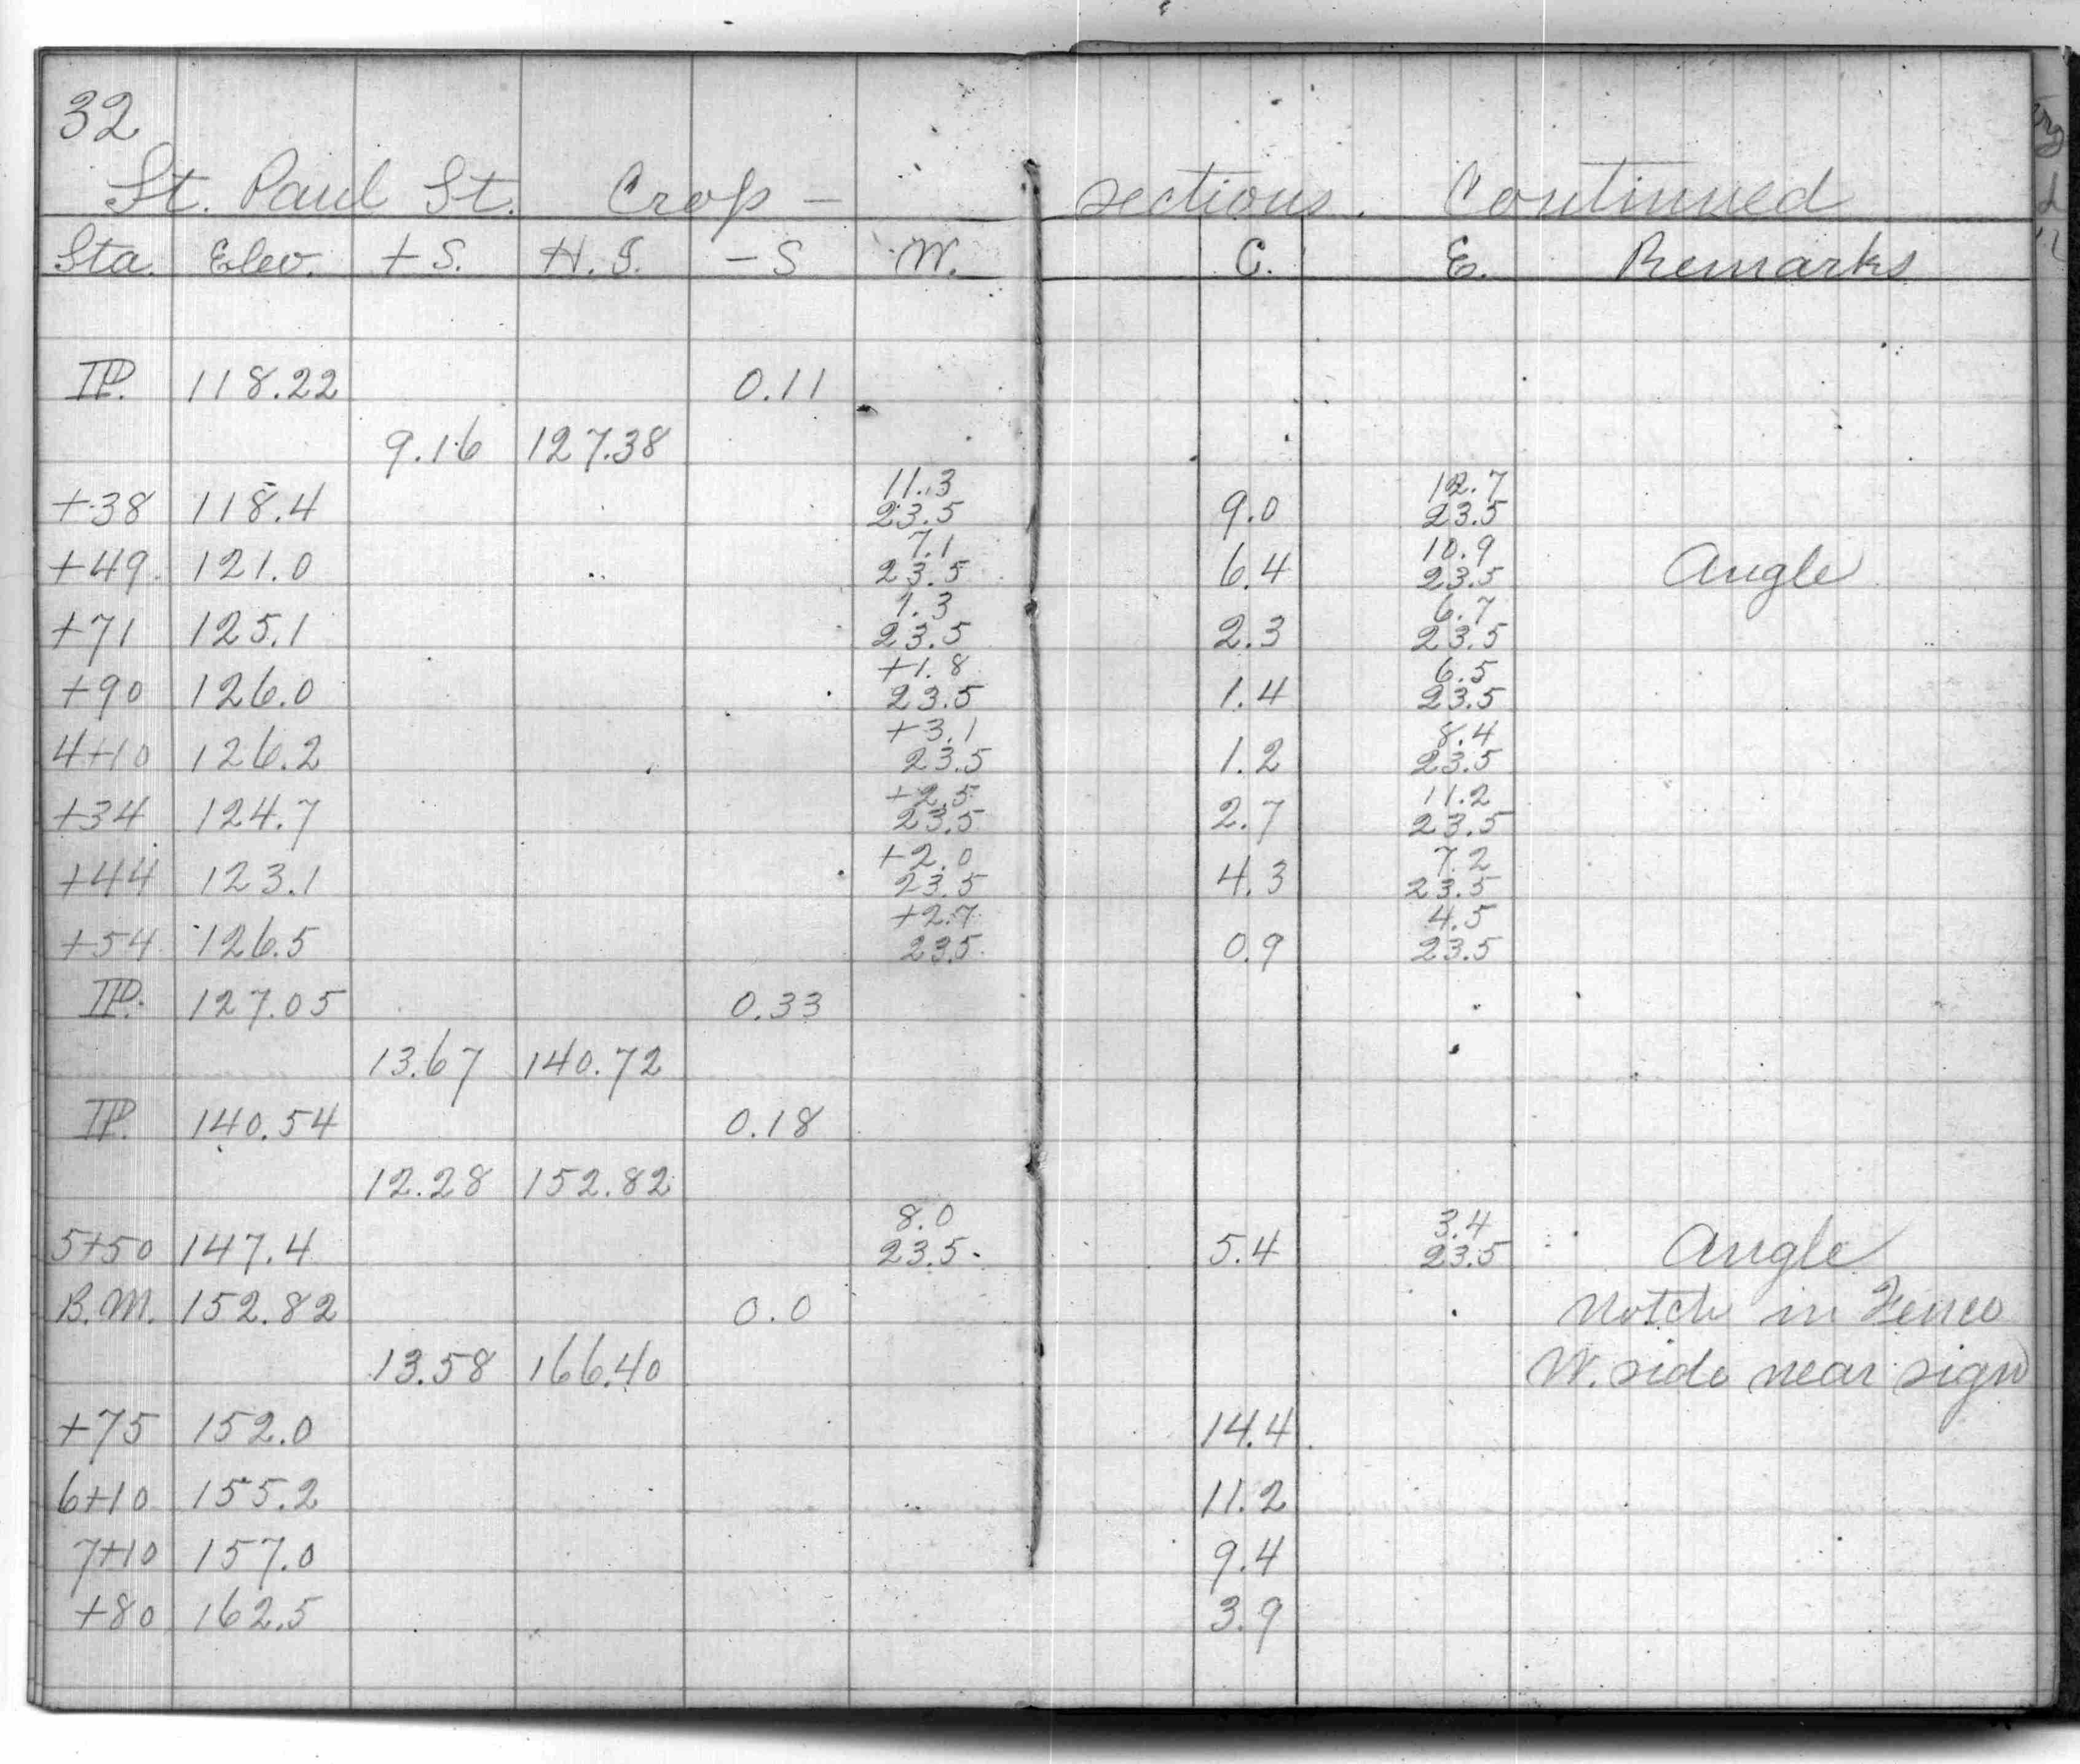 32
St. Paul St. Cross - sections. Continued
Sta. Elev. + S. H. I. - S W. C. E. Remarks
TP. 118.22 0.11
9.16 127.38
11.3 12.7
+38 118.4 23.5 9.0 23.5
7.1 10.9
+49 121.0 23.5 6.4 23.5 Angle
1.3 6.7
+71 125.1 23.5 2.3 23.5
+1.8 6.5
+90 126.0 23.5 1.4 23.5
+3.1 8.4
4+10 126.2 23.5 1.2 23.5
+2.5 11.2
+34 124.7 23.5 2.7 23.5
+2.0 7.2
+44 123.1 23.5 4.3 23.5
+2.7 4.5
+54 126.5 23.5 0.9 23.5
TP. 127.05 0.33
13.67 140.72
TP. 140.54 0.18
12.28 152.82
8.0 3.4
5+50 147.4 23.5 5.4 23.5 Angle
B.M. 152.82 0.0 Notch in Fence
13.58 166.40 W. side near sign
+75 152.0 14.4
6+10 155.2 11.2
7+10 157.0 9.4
+80 162.5 3.9